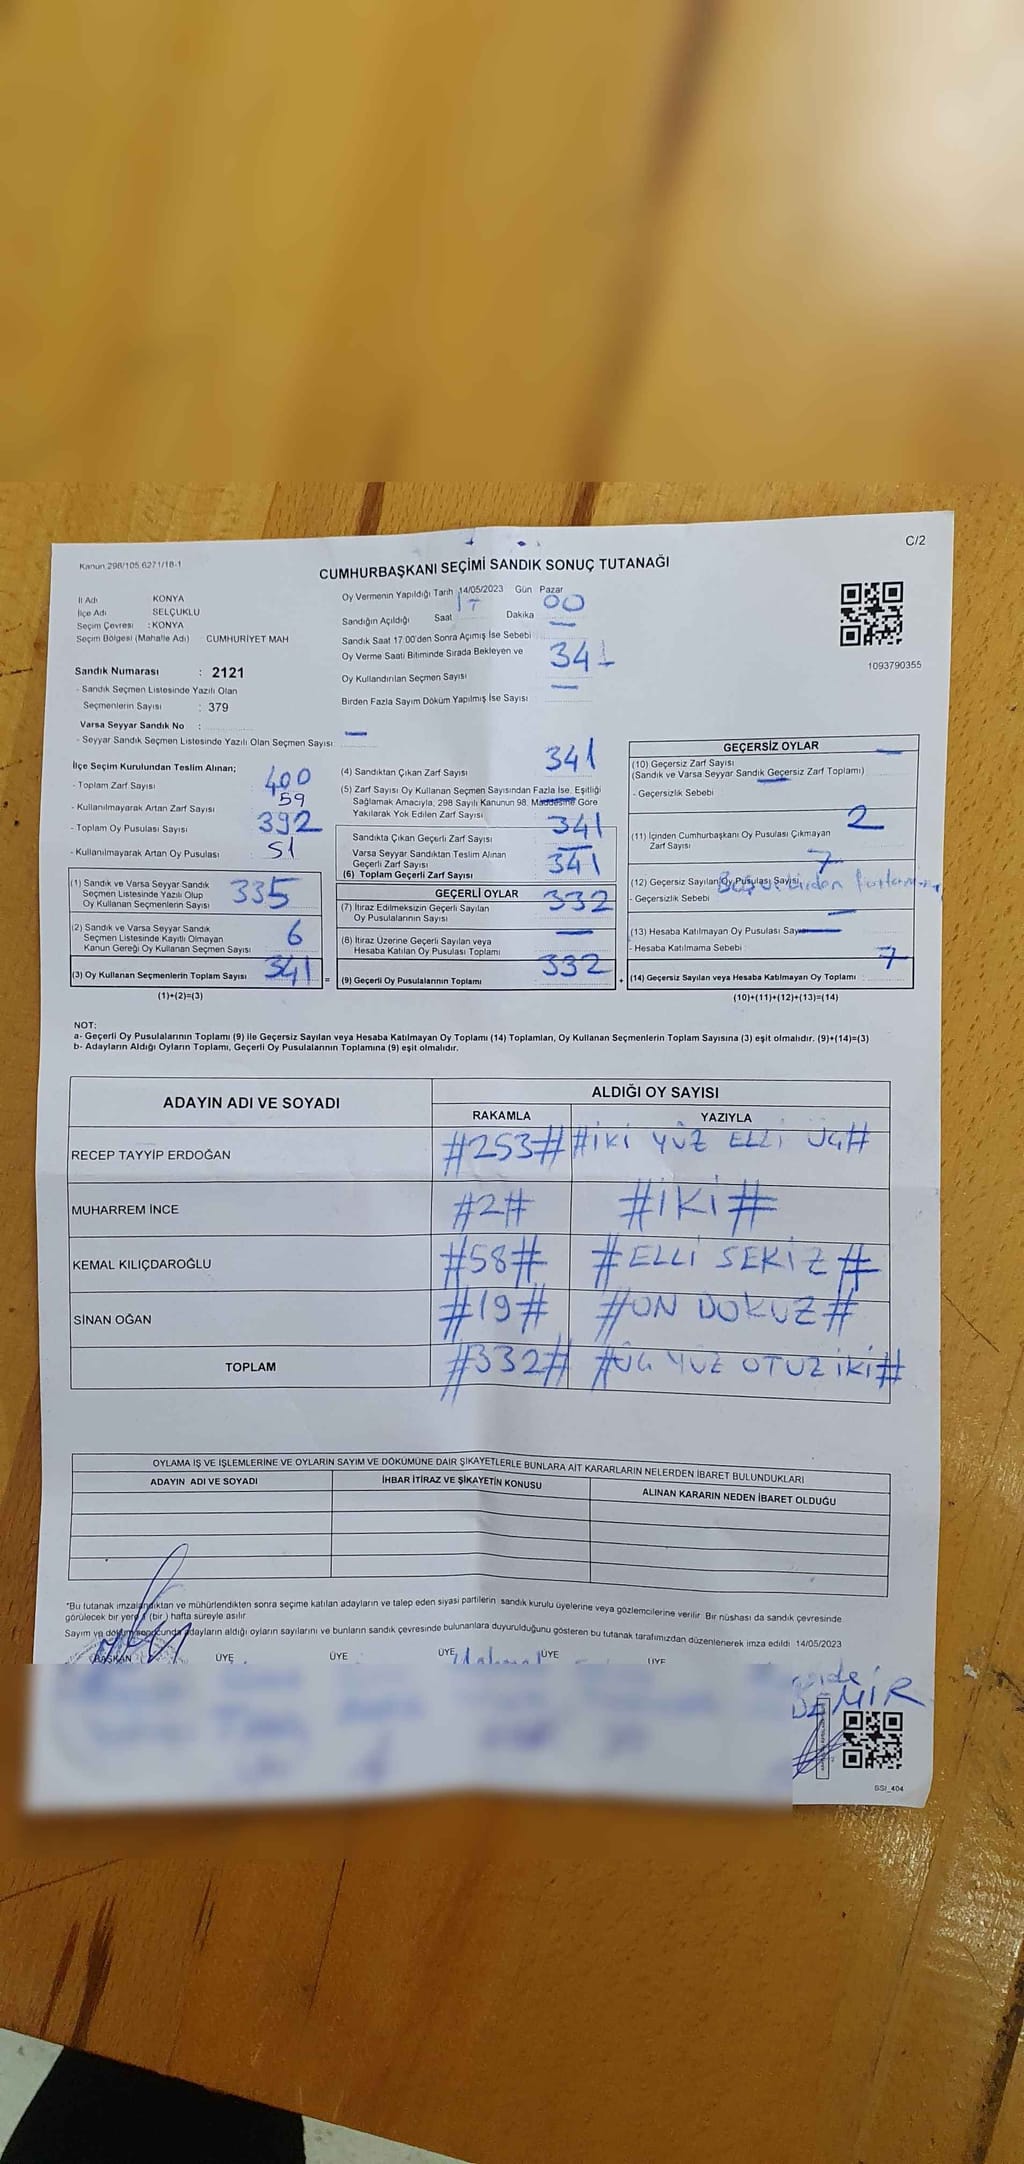 C/2
Kanun 298/105 6271/18-1
CUMHURBAŞKANI SEÇİMİ SANDIK SONUÇ TUTANAĞI
İl Adı KONYA
İlçe Adı SELÇUKLU
Seçim Çevresi : KONYA
Seçim Bölgesi (Mahalle Adı) CUMHURİYET MAH
Sandık Numarası : 2121
- Sandık Seçmen Listesinde Yazılı Olan
Seçmenlerin Sayısı : 379
Varsa Seyyar Sandık No :
- Seyyar Sandık Seçmen Listesinde Yazılı Olan Seçmen Sayısı: —
Oy Vermenin Yapıldığı Tarih 14/05/2023 Gün Pazar
Sandığın Açıldığı Saat 17 Dakika 00
Sandık Saat 17:00'den Sonra Açımış İse Sebebi —
Oy Verme Saati Bitiminde Sırada Bekleyen ve
Oy Kullandırılan Seçmen Sayısı 341
Birden Fazla Sayım Döküm Yapılmış İse Sayısı —
1093790355
İlçe Seçim Kurulundan Teslim Alınan;
- Toplam Zarf Sayısı 400
- Kullanılmayarak Artan Zarf Sayısı 59
- Toplam Oy Pusulası Sayısı 392
- Kullanılmayarak Artan Oy Pusulası 51
(1) Sandık ve Varsa Seyyar Sandık
Seçmen Listesinde Yazılı Olup
Oy Kullanan Seçmenlerin Sayısı 335
(2) Sandık ve Varsa Seyyar Sandık
Seçmen Listesinde Kayıtlı Olmayan
Kanun Gereği Oy Kullanan Seçmen Sayısı 6
(3) Oy Kullanan Seçmenlerin Toplam Sayısı 341 =
(1)+(2)=(3)
(4) Sandıktan Çıkan Zarf Sayısı 341
(5) Zarf Sayısı Oy Kullanan Seçmen Sayısından Fazla İse, Eşitliği
Sağlamak Amacıyla, 298 Sayılı Kanunun 98. Maddesine Göre
Yakılarak Yok Edilen Zarf Sayısı —
Sandıkta Çıkan Geçerli Zarf Sayısı 341
Varsa Seyyar Sandıktan Teslim Alınan
Geçerli Zarf Sayısı —
(6) Toplam Geçerli Zarf Sayısı 341
GEÇERLİ OYLAR
(7) İtiraz Edilmeksizin Geçerli Sayılan
Oy Pusulalarının Sayısı 332
(8) İtiraz Üzerine Geçerli Sayılan veya
Hesaba Katılan Oy Pusulası Toplamı —
(9) Geçerli Oy Pusulalarının Toplamı 332 +
GEÇERSİZ OYLAR
(10) Geçersiz Zarf Sayısı —
(Sandık ve Varsa Seyyar Sandık Geçersiz Zarf Toplamı)
- Geçersizlik Sebebi —
(11) İçinden Cumhurbaşkanı Oy Pusulası Çıkmayan
Zarf Sayısı 2
(12) Geçersiz Sayılan Oy Pusulası Sayısı 7
- Geçersizlik Sebebi
(13) Hesaba Katılmayan Oy Pusulası Sayısı —
- Hesaba Katılmama Sebebi —
(14) Geçersiz Sayılan veya Hesaba Katılmayan Oy Toplamı 7
(10)+(11)+(12)+(13)=(14)
NOT:
a- Geçerli Oy Pusulalarının Toplamı (9) ile Geçersiz Sayılan veya Hesaba Katılmayan Oy Toplamı (14) Toplamları, Oy Kullanan Seçmenlerin Toplam Sayısına (3) eşit olmalıdır. (9)+(14)=(3)
b- Adayların Aldığı Oyların Toplamı, Geçerli Oy Pusulalarının Toplamına (9) eşit olmalıdır.
ADAYIN ADI VE SOYADI ALDIĞI OY SAYISI
RAKAMLA YAZIYLA
RECEP TAYYİP ERDOĞAN #253# #İKİ YÜZ ELLİ ÜÇ#
MUHARREM İNCE #2# #İKİ#
KEMAL KILIÇDAROĞLU #58# #ELLİ SEKİZ#
SİNAN OĞAN #19# #ON DOKUZ#
TOPLAM #332# #ÜÇ YÜZ OTUZ İKİ#
OYLAMA İŞ VE İŞLEMLERİNE VE OYLARIN SAYIM VE DÖKÜMÜNE DAİR ŞİKAYETLERLE BUNLARA AİT KARARLARIN NELERDEN İBARET BULUNDUKLARI
ADAYIN ADI VE SOYADI İHBAR İTİRAZ VE ŞİKAYETİN KONUSU ALINAN KARARIN NEDEN İBARET OLDUĞU
*Bu tutanak imzalandıktan ve mühürlendikten sonra seçime katılan adayların ve talep eden siyasi partilerin sandık kurulu üyelerine veya gözlemcilerine verilir. Bir nüshası da sandık çevresinde
görülecek bir yere 1 (bir ) hafta süreyle asılır
Sayım ve döküm sonucunda adayların aldığı oyların sayılarını ve bunların sandık çevresinde bulunanlara duyurulduğunu gösteren bu tutanak tarafımızdan düzenlenerek imza edildi 14/05/2023
BAŞKAN ÜYE ÜYE ÜYE ÜYE ÜYE
DEMİR
SSI_404